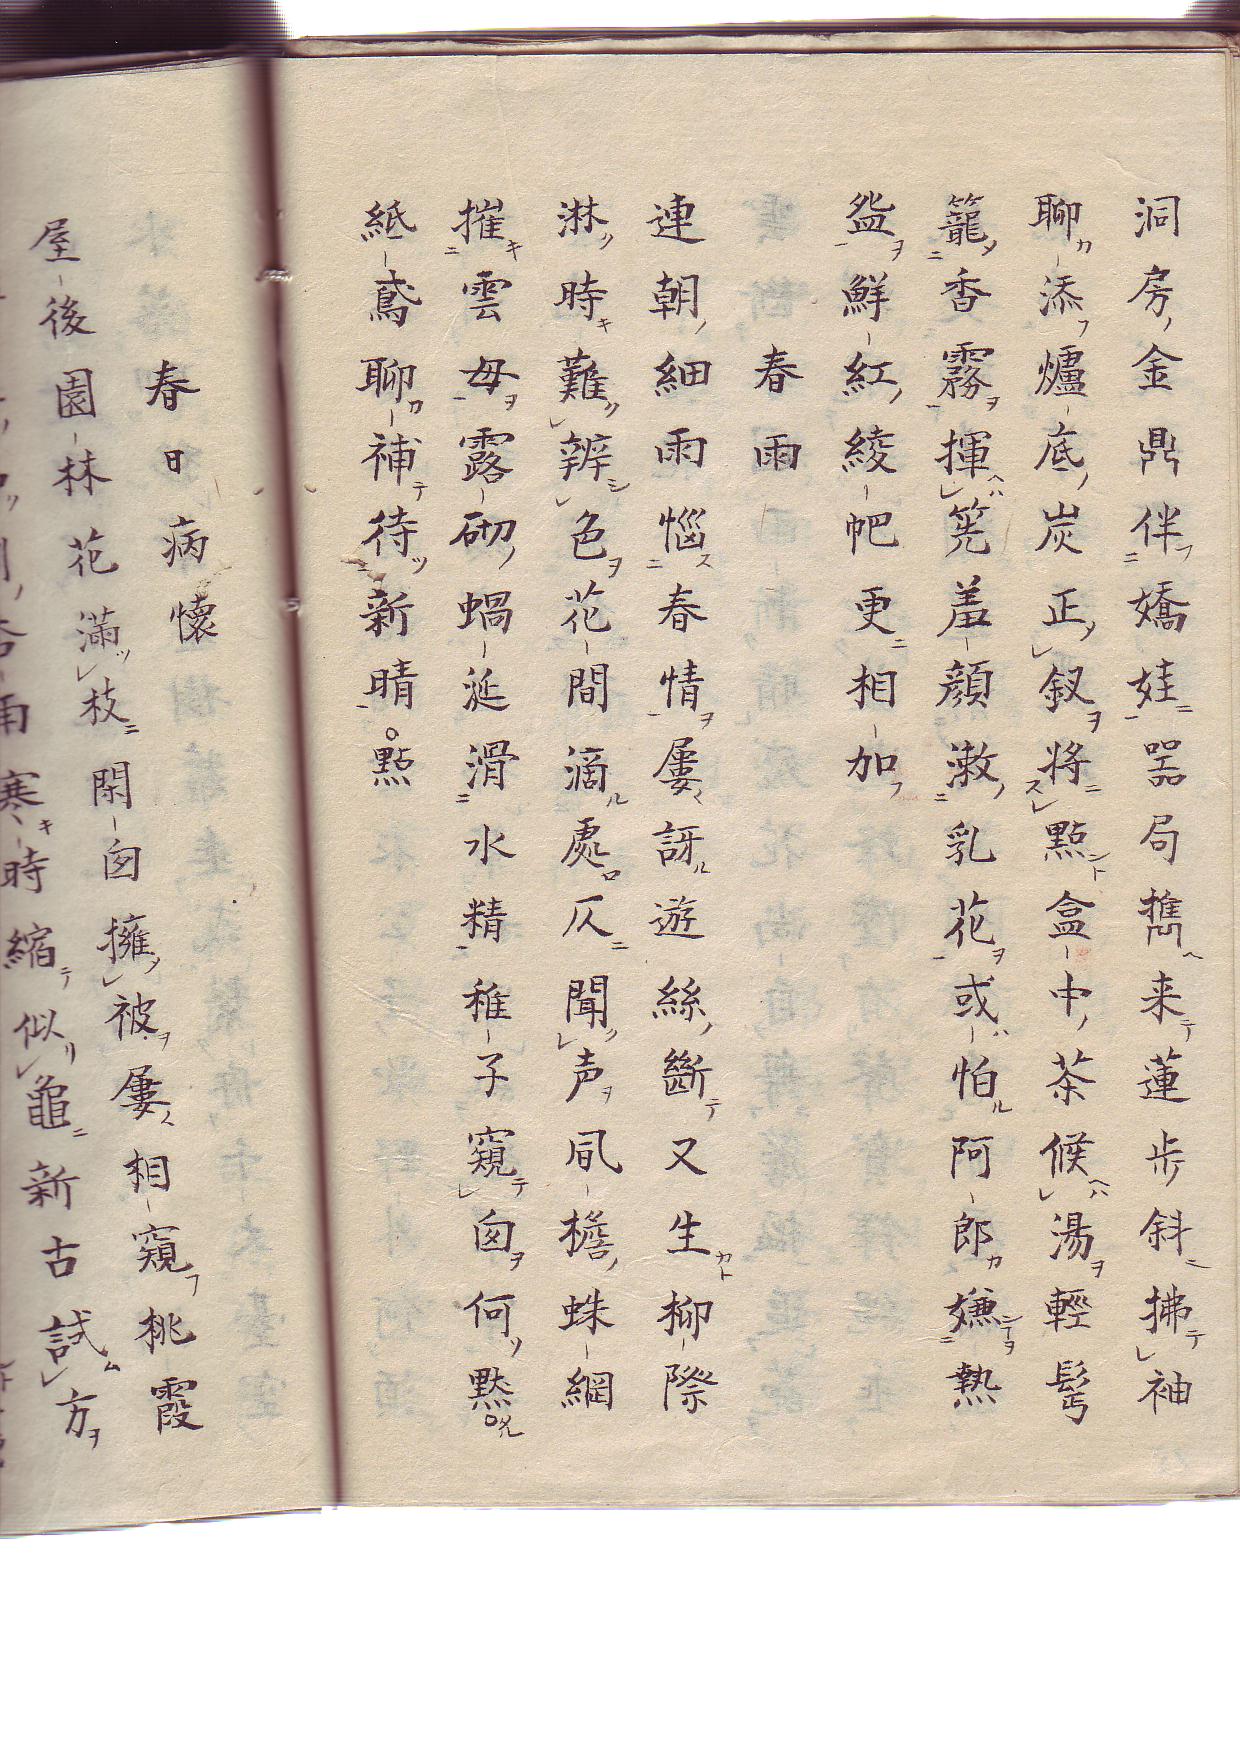 洞房金鼎伴嬌娃器局携来蓮歩斜拂袖
聊添爐底炭正釵将點盒中茶候湯軽髩
籠香霧揮筅羞顔漱乳花或怕阿郎嫌熱
盌鮮紅綾帊更相加
春雨
連朝細雨惱春情屢訝遊絲斷又生柳際
淋時難辨色花間滴處仄聞声凨檐蛛網
摧雲母露砌蝸涎滑水精稚子窺囱何黙
紙鳶聊補待新晴
點
春日病懷
屋後園林花満枝閑囱擁被屢相窺桃霞
雨寒時縮似龜新古試方